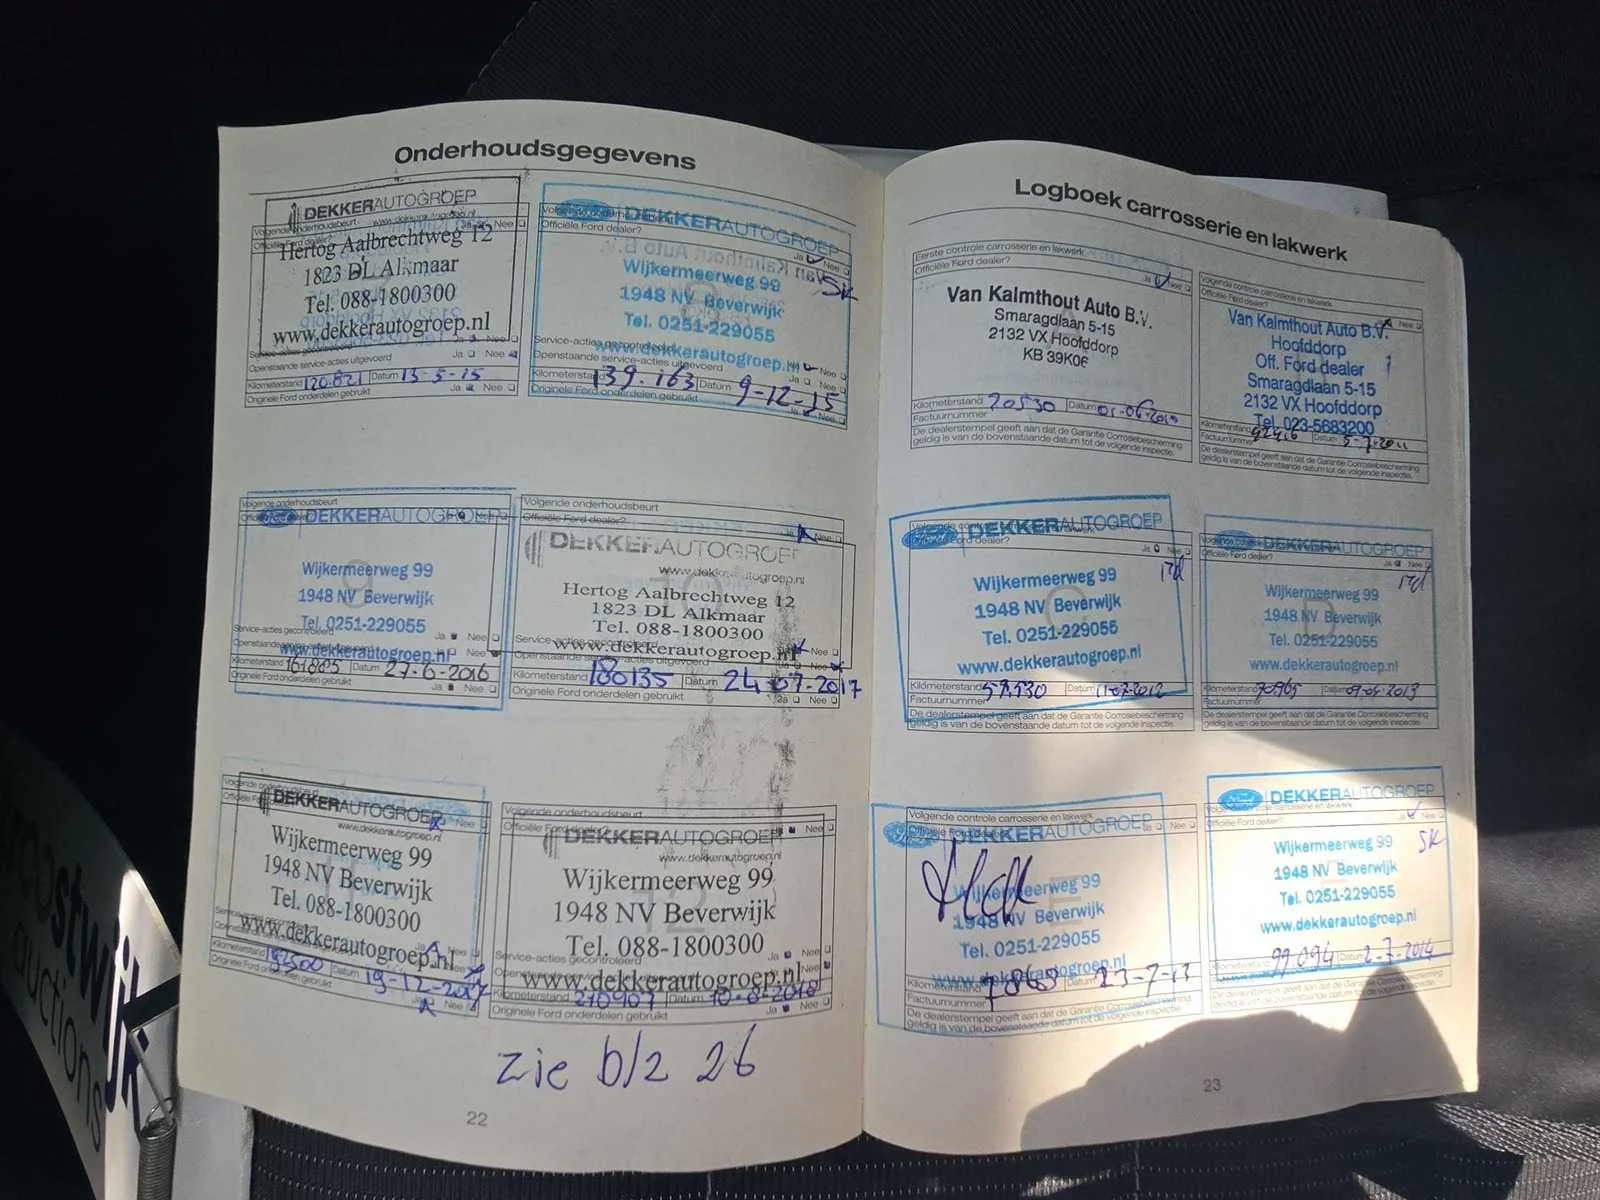 Onderhoudsgegevens
DEKKERAUTOGROEP
www.dekkerautogroep.nl
Hertog Aalbrechtweg 12
1823 DL Alkmaar
Tel. 088-1800300
www.dekkerautogroep.nl
Openstaande service-acties uitgevoerd Ja Nee
Kilometerstand 120.821 Datum 13-5-15
Originele Ford onderdelen gebruikt Ja Nee
DEKKERAUTOGROEP
Officiële Ford dealer?
Ja Nee
Wijkermeerweg 99 SK
1948 NV Beverwijk
Tel. 0251-229055
www.dekkerautogroep.nl
Openstaande service-acties uitgevoerd Ja Nee
Kilometerstand 139.163 Datum 9-12-15
Originele Ford onderdelen gebruikt Ja Nee
Volgende onderhoudsbeurt
DEKKERAUTOGROEP
Wijkermeerweg 99
1948 NV Beverwijk
Tel. 0251-229055
Service-acties gecontroleerd Ja Nee
www.dekkerautogroep.nl
Kilometerstand 161885 Datum 27-6-2016
Originele Ford onderdelen gebruikt Ja Nee
Volgende onderhoudsbeurt
Officiële Ford dealer? Nee
DEKKERAUTOGROEP
www.dekkerautogroep.nl
Hertog Aalbrechtweg 12
1823 DL Alkmaar
Tel. 088-1800300
www.dekkerautogroep.nl
Openstaande service-acties uitgevoerd Ja Nee
Kilometerstand 180135 Datum 24-07-2017
Originele Ford onderdelen gebruikt Ja Nee
DEKKERAUTOGROEP
www.dekkerautogroep.nl
Wijkermeerweg 99
1948 NV Beverwijk
Tel. 088-1800300
www.dekkerautogroep.nl
Kilometerstand Datum 19-12-2017
Originele Ford onderdelen gebruikt
Volgende onderhoudsbeurt
DEKKERAUTOGROEP
www.dekkerautogroep.nl
Wijkermeerweg 99
1948 NV Beverwijk
Tel. 088-1800300
Service-acties gecontroleerd Ja Nee
www.dekkerautogroep.nl
Kilometerstand 210907 Datum
Originele Ford onderdelen gebruikt Ja Nee
zie blz 26
22
Logboek carrosserie en lakwerk
Eerste controle carrosserie en lakwerk
Officiële Ford dealer? Ja Nee
Van Kalmthout Auto B.V.
Smaragdlaan 5-15
2132 VX Hoofddorp
KB 39K06
Kilometerstand 20530 Datum 01-06-2010
Factuurnummer
De dealerstempel geeft aan dat de Garantie Corrosiebescherming
geldig is van de bovenstaande datum tot de volgende inspectie.
Volgende controle carrosserie en lakwerk
Officiële Ford dealer?
Van Kalmthout Auto B.V.
Hoofddorp
Off. Ford dealer
Smaragdlaan 5-15
2132 VX Hoofddorp
Tel. 023-5683200
Kilometerstand Datum 5-7-2011
Factuurnummer
De dealerstempel geeft aan dat de Garantie Corrosiebescherming
geldig is van de bovenstaande datum tot de volgende inspectie.
DEKKERAUTOGROEP
Ja Nee
Wijkermeerweg 99
1948 NV Beverwijk
Tel. 0251-229055
www.dekkerautogroep.nl
Kilometerstand 57.530 Datum 11-07-2012
Factuurnummer
De dealerstempel geeft aan dat de Garantie Corrosiebescherming
geldig is van de bovenstaande datum tot de volgende inspectie.
DEKKERAUTOGROEP
Officiële Ford dealer? Ja Nee
Wijkermeerweg 99
1948 NV Beverwijk
Tel. 0251-229055
www.dekkerautogroep.nl
Kilometerstand 70965 Datum
Factuurnummer
De dealerstempel geeft aan dat de Garantie Corrosiebescherming
geldig is van de bovenstaande datum tot de volgende inspectie.
Volgende controle carrosserie en lakwerk
DEKKERAUTOGROEP
Wijkermeerweg 99
1948 NV Beverwijk
Tel. 0251-229055
www.dekkerautogroep.nl
Kilometerstand Datum 23-7-13
Factuurnummer
De dealerstempel geeft aan dat de Garantie Corrosiebescherming
geldig is van de bovenstaande datum tot de volgende inspectie.
Ford DEKKERAUTOGROEP
Officiële Ford dealer? Ja Nee
Wijkermeerweg 99 SK
1948 NV Beverwijk
Tel. 0251-229055
www.dekkerautogroep.nl
Kilometerstand 99.094 Datum 2-7-2014
Factuurnummer
23
troostwijk
auctions